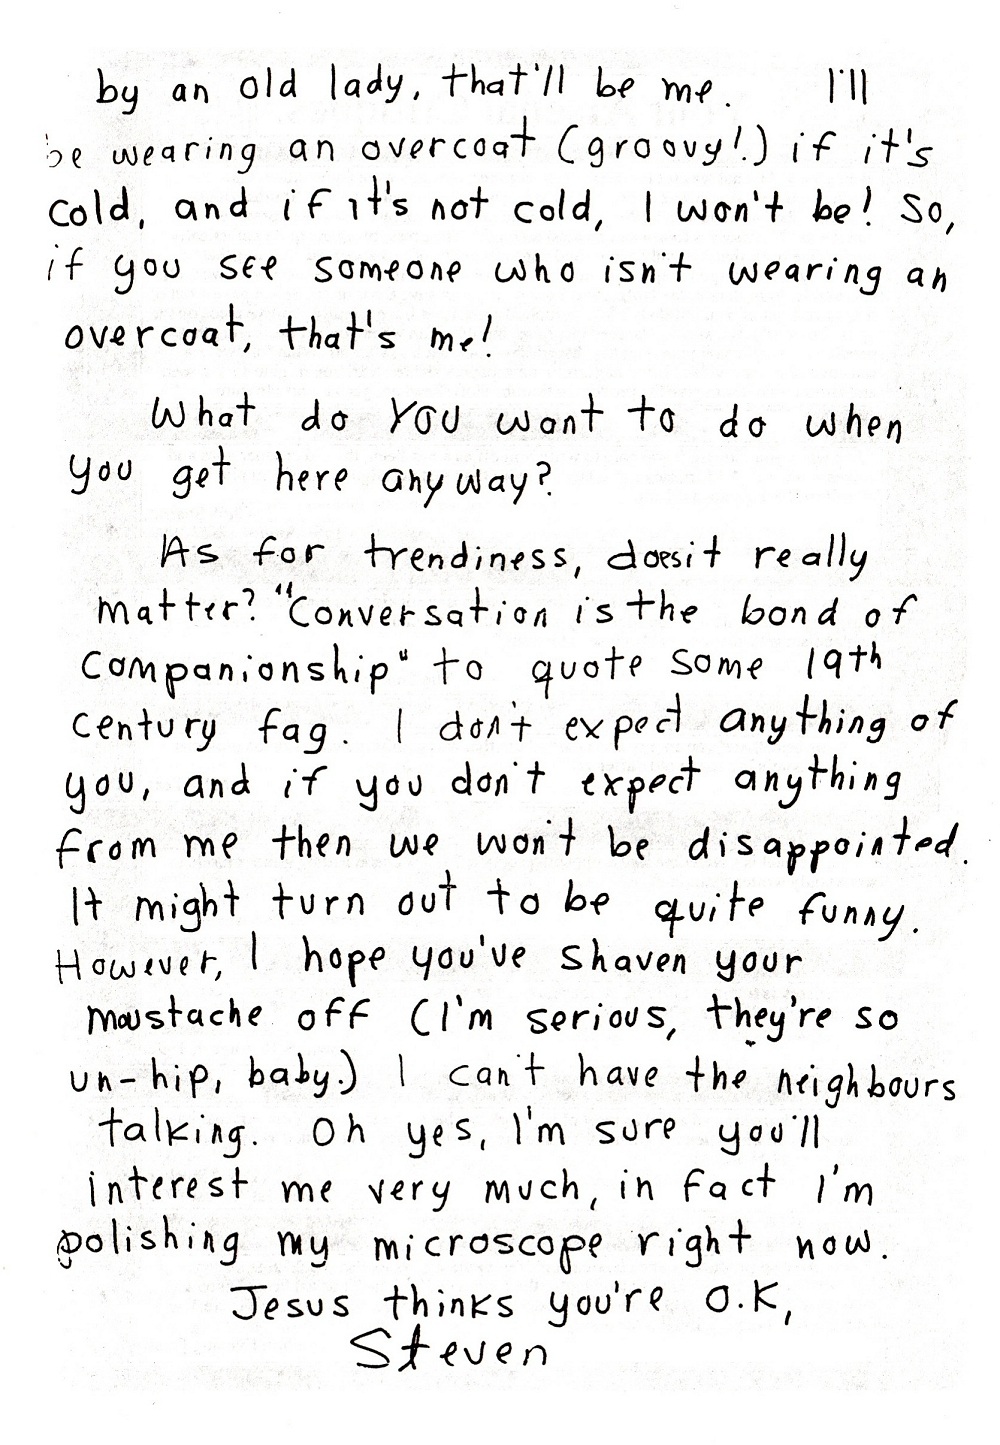 by an old lady, that'll be me. I'll
be wearing an overcoat (groovy!) if it's
cold, and if it's not cold, I won't be! So,
if you see someone who isn't wearing an
overcoat, that's me!
What do YOU want to do when
you get here anyway?
As for trendiness, does it really
matter? "Conversation is the bond of
companionship" to quote some 19th
century fag. I don't expect anything of
you, and if you don't expect anything
from me then we won't be disappointed.
It might turn out to be quite funny.
However, I hope you've shaven your
moustache off (I'm serious, they're so
un-hip, baby.) I can't have the neighbours
talking. Oh yes, I'm sure you'll
interest me very much, in fact I'm
polishing my microscope right now.
Jesus thinks you're O.K,
Steven